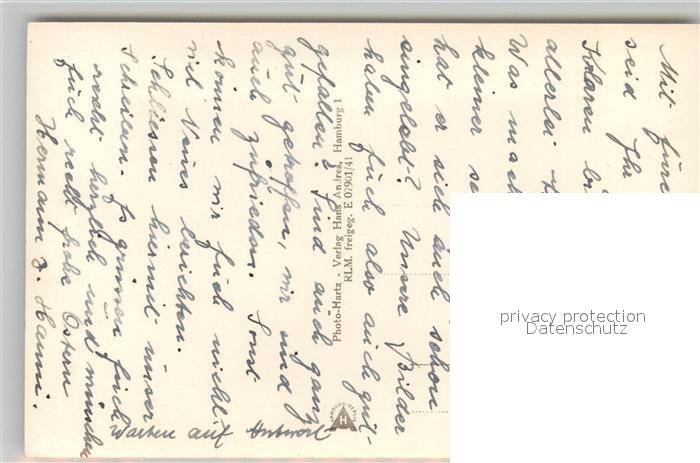 Mit
seid Ihr
allerlei
Was
kleiner
hat er sich auch schon
eingelebt? Unsere Bilder
haben Euch also auch gut-
gefallen? Sind auch ganz
gut getroffen, wir sind
auch zufrieden. Sonst
können wir Euch nicht
viel Neues berichten.
Schliessen hiermit unser
Schreiben. Es grüssen Euch
recht herzlich und wünschen
Euch recht frohe Ostern
Hermann u. Hanni.
Warten auf Antwort
Photo-Hartz - Verlag Hans Andres, Hamburg 1
RLM. freigeg. E 07901/41
HAMBURG-BERLIN
H
privacy protection
Datenschutz